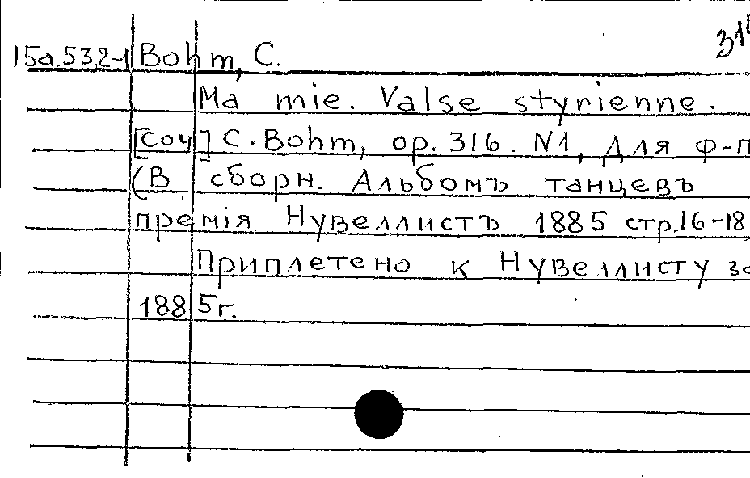 15а.532-1 Bohm, C. 31
Ma mie. Valse styrienne.
[Соч] C. Bohm, op. 316. N1, для ф-п
(В сборн. Альбомъ танцевъ
премія Нувеллистъ 1885 стр.16-18
Приплетено к Нувеллисту за
1885г.